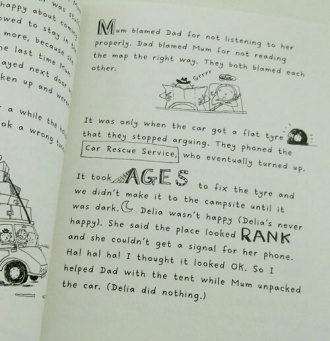 was
happy about com
owed to stay in
more, because th
e last time Mum
ayed next door
ken up and went
a while the
ok a wrong
Mum blamed Dad for not listening to her
properly. Dad blamed Mum for not reading
the map the right way. They both blamed each
other.
Grrrr
It was only when the car got a flat tyre
that they stopped arguing. They phoned the
Car Rescue Service, who eventually turned up.
It took AGES to fix the tyre and
we didn't make it to the campsite until it
was dark. Delia wasn't happy (Delia's never
happy). She said the place looked RANK
and she couldn't get a signal for her phone.
Ha! ha! ha! I thought it looked OK. So I
helped Dad with the tent while Mum unpacked
the car. (Delia did nothing.)